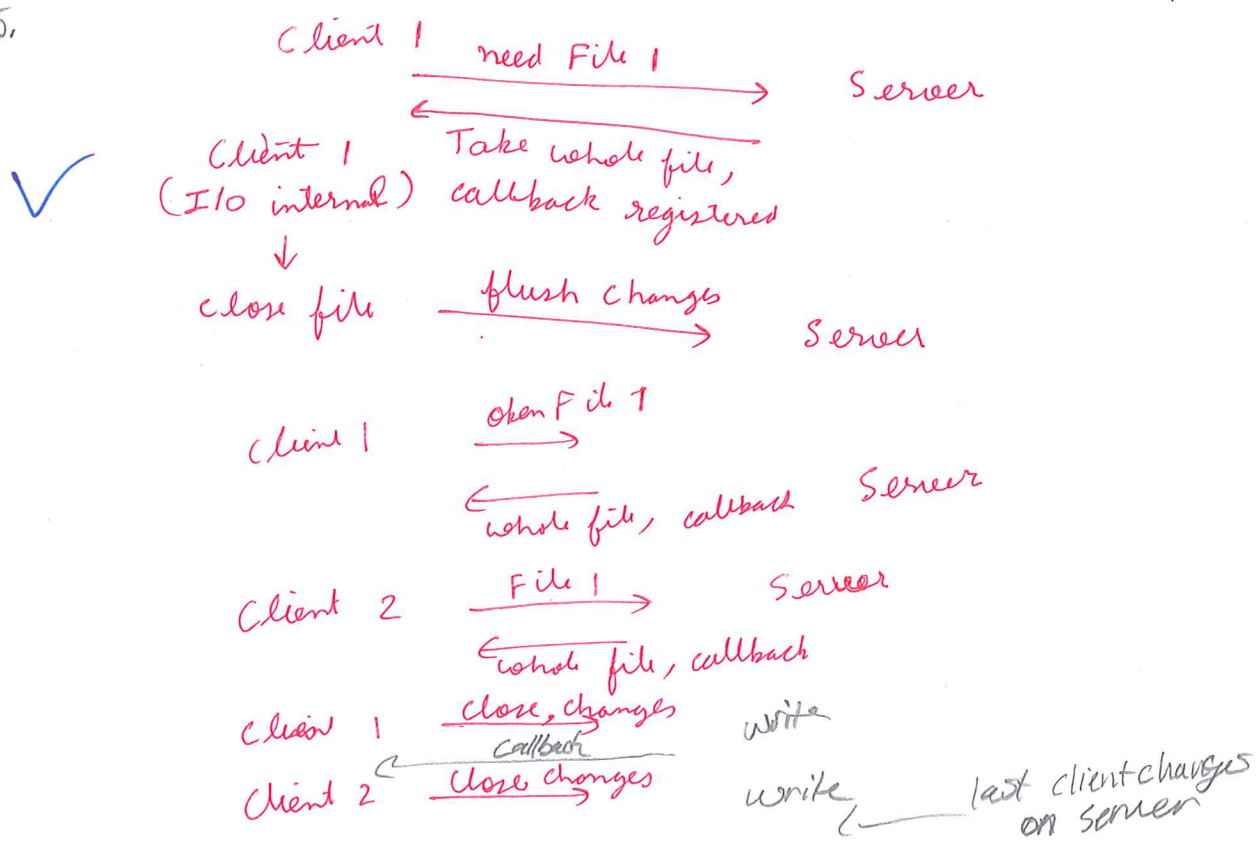 5.
Client 1 need File 1 Server
Client 1 Take whole file,
(I/O internal) callback registered
close file flush changes Server
Client 1 open File 1
whole file, callback Server
Client 2 File 1 Server
whole file, callback
Client 1 close, changes write
Callback
Client 2 Close changes write last client changes
on server